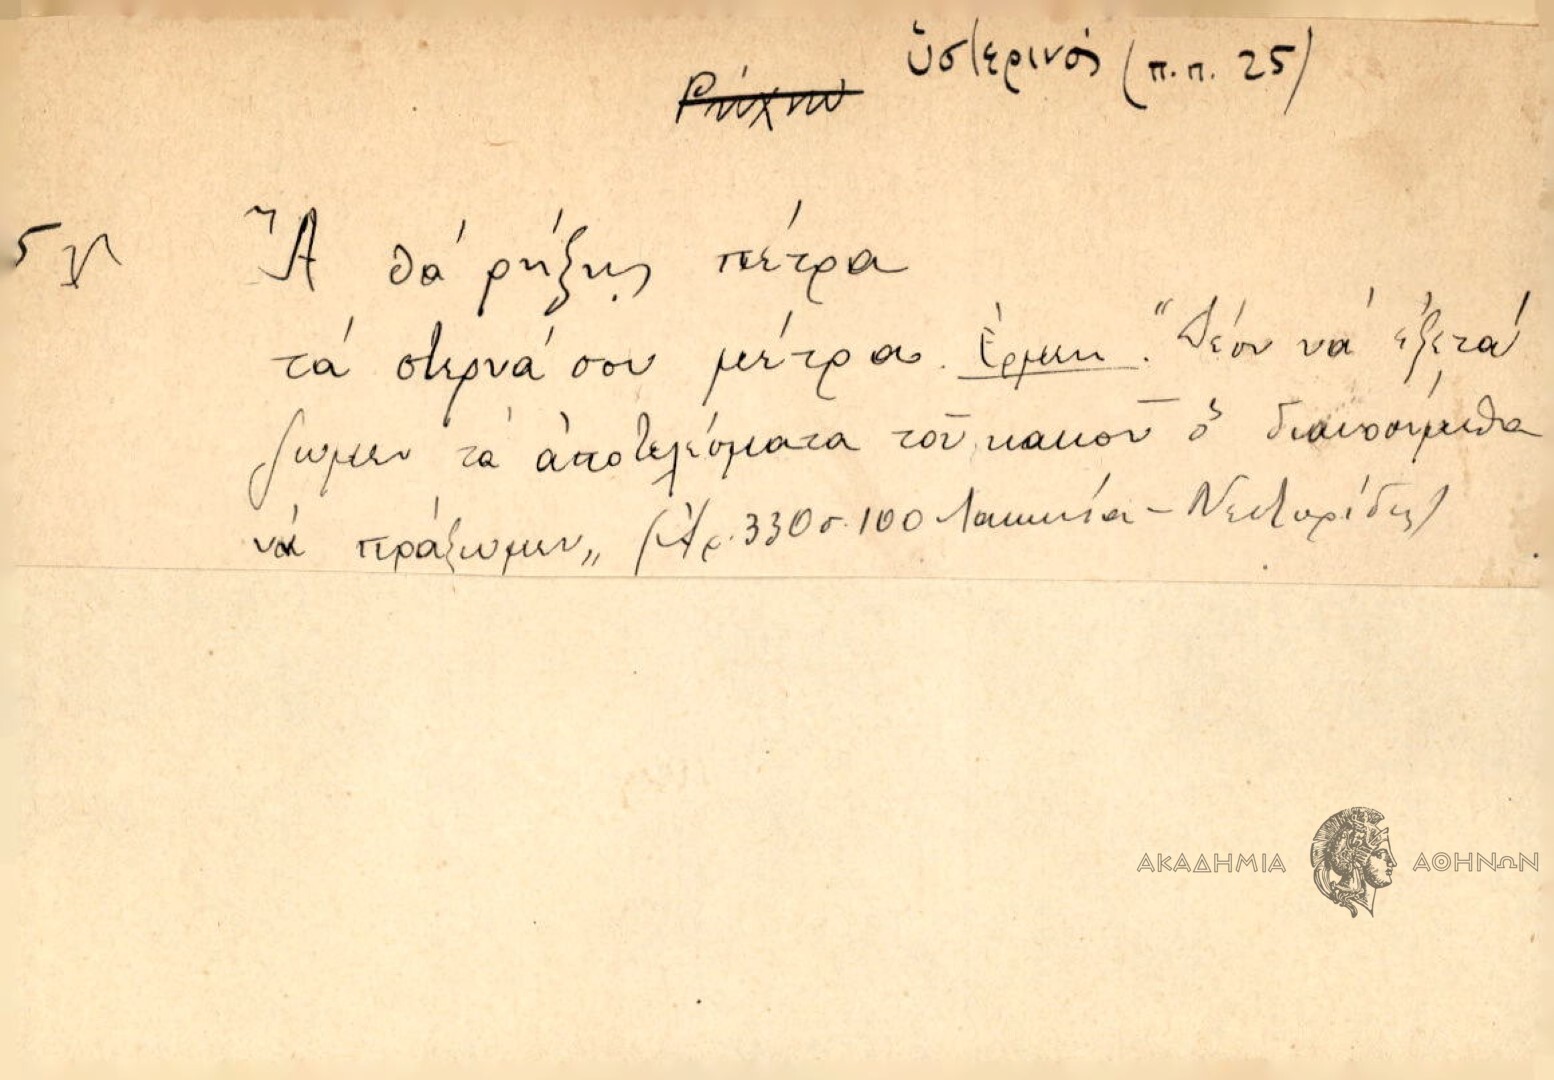 ὑστερινός (π.π. 25)
Ἂ θά ρήξῃς πέτρα
τά στερνά σου μέτρα. Ἑρμην. "Δέον νά ἐξετά
ζωμεν τά ἀποτελέσματα τοῦ κακοῦ ὅ διανοούμεθα
νά πράξωμεν„ (Ἀρ. 330 σ. 100 Λακωνία - Νεστορίδης)
ΑΚΑΔΗΜΙΑ ΑΘΗΝΩΝ